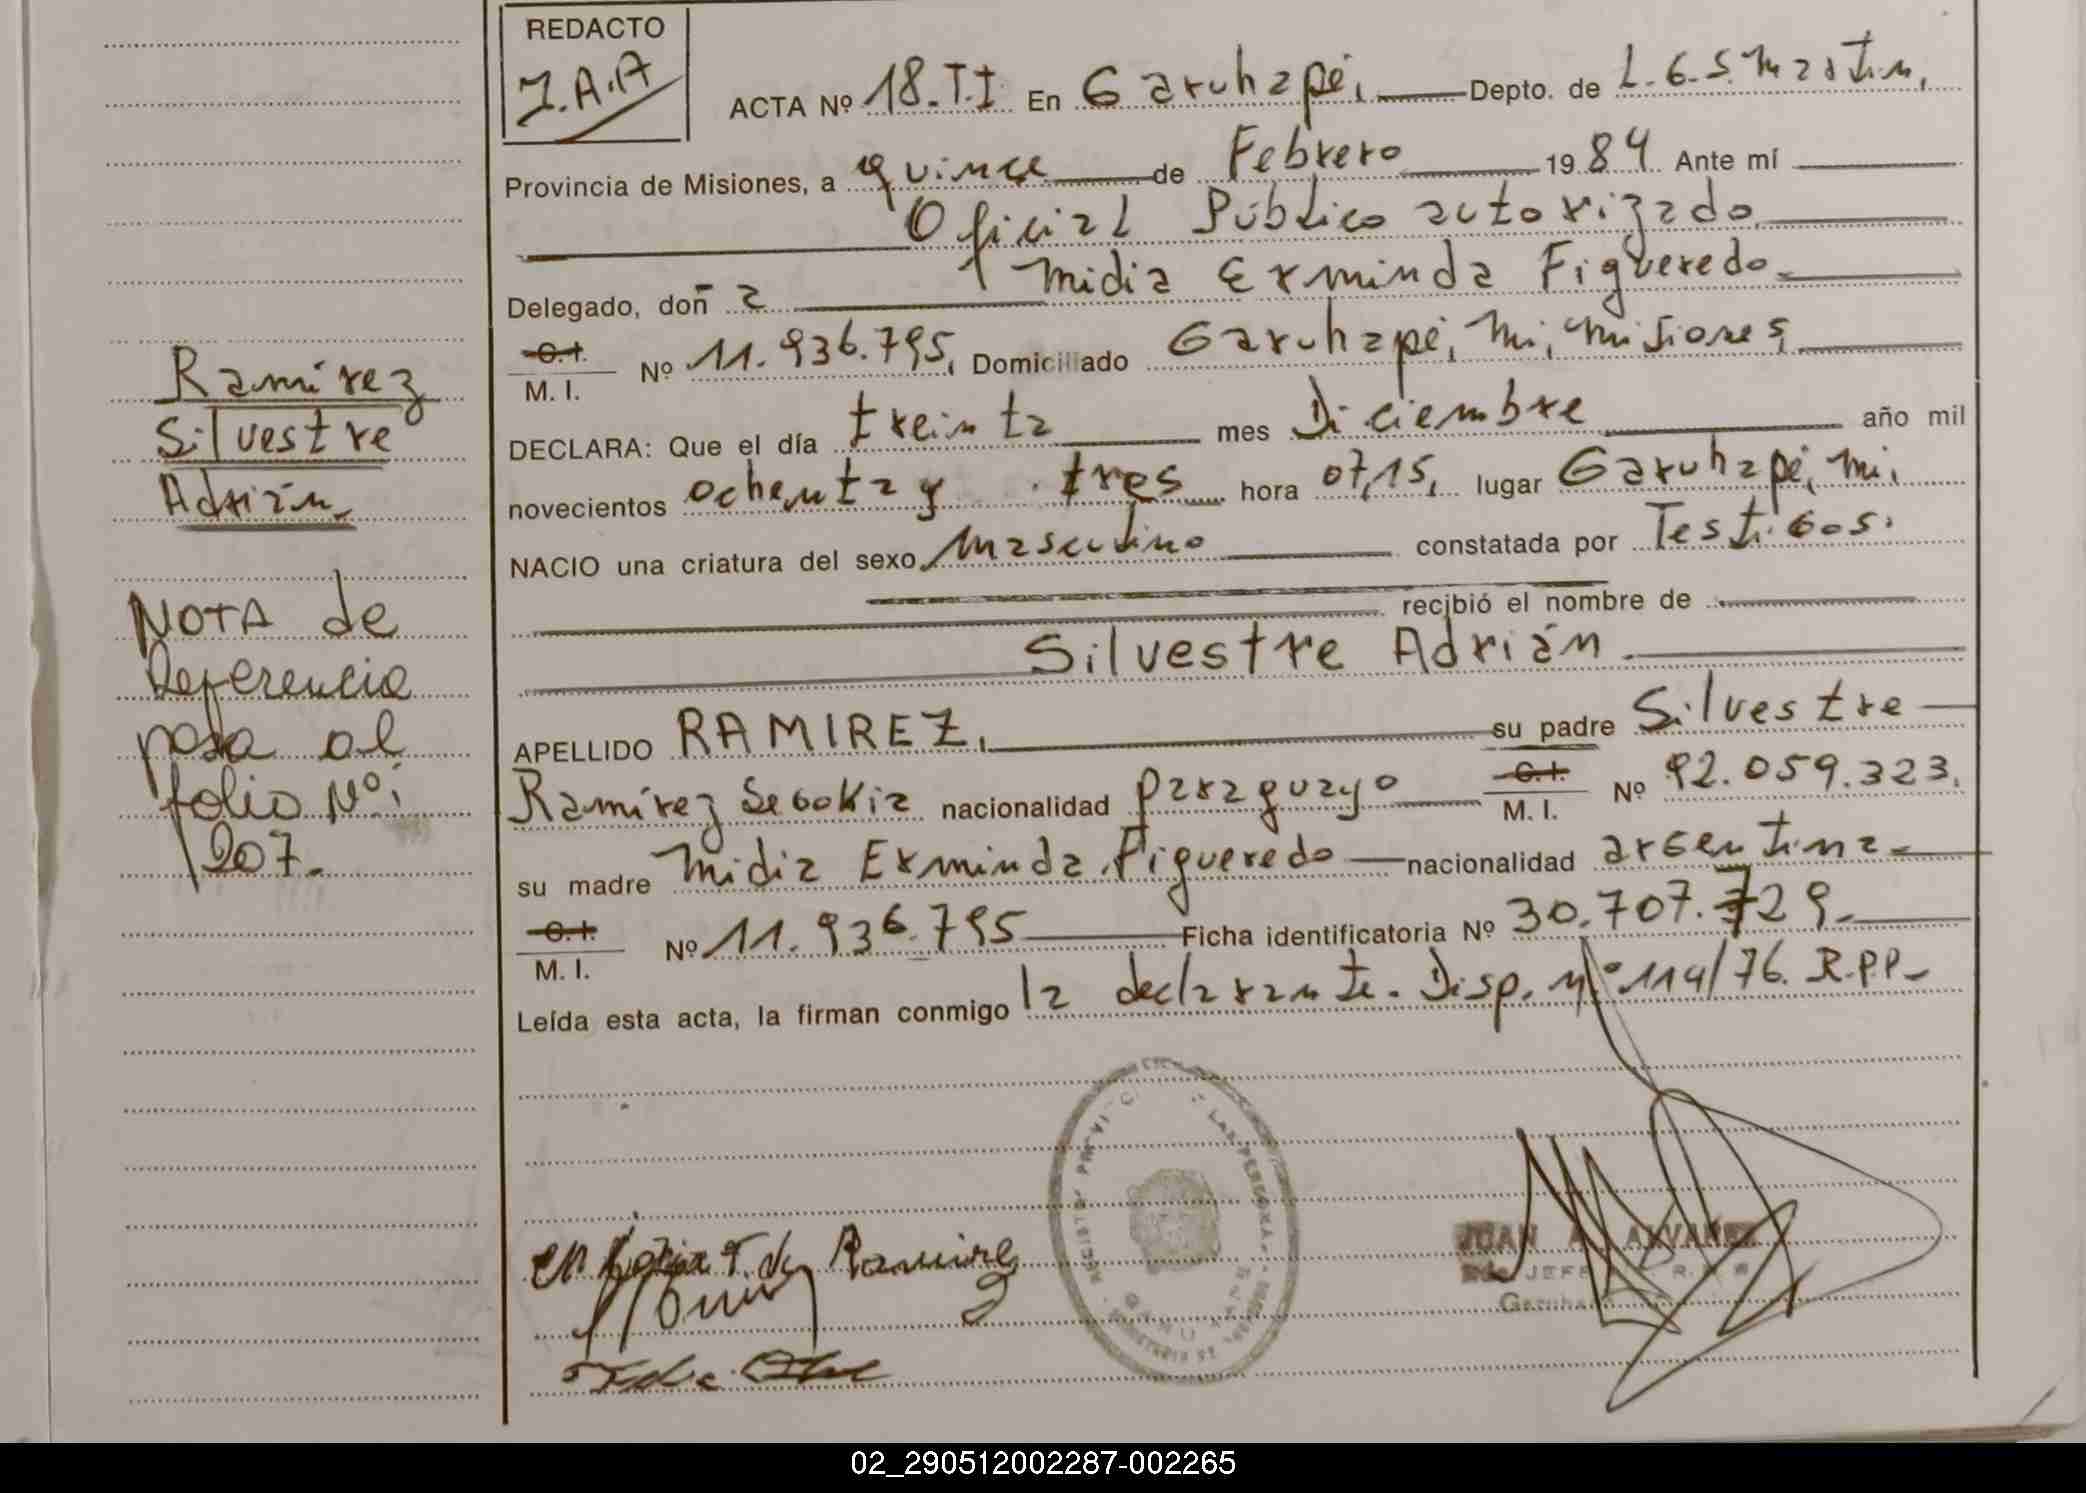 REDACTO
J.A.A
ACTA Nº 18.T.I En Garuhapé, Depto. de L.G.S.Martin,
Provincia de Misiones, a quince de Febrero 1984. Ante mí
Oficial Público autorizado
Delegado, doña Midia Erminda Figueredo
C.I. M. I. Nº 11.936.795, Domiciliado Garuhapé, Mi, Misiones,
DECLARA: Que el día treinta mes Diciembre año mil
novecientos ochenta y tres hora 07,15, lugar Garuhapé, Mi,
NACIO una criatura del sexo Masculino constatada por Testigos.
recibió el nombre de
Silvestre Adrián
APELLIDO RAMIREZ, su padre Silvestre
Ramírez Segokia nacionalidad paraguayo C.I. M. I. Nº 92.059.323,
su madre Midia Erminda Figueredo nacionalidad argentina
C.I. M. I. Nº 11.936.795 Ficha identificatoria Nº 30.707.729.
Leída esta acta, la firman conmigo la declarante. Disp. Nº 114/76. R.P.P.
Ramírez
Silvestre
Adrián
NOTA de
Referencia
pasa al
folio Nº:
207.
de Ramirez
JUAN A. ALVAREZ
JEFE
02_290512002287-002265